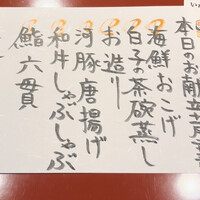 本日のお献立
海鮮おこげ
白子の茶碗蒸し
お造り
河豚唐揚げ
和牛しゃぶしゃぶ
鮨六貫